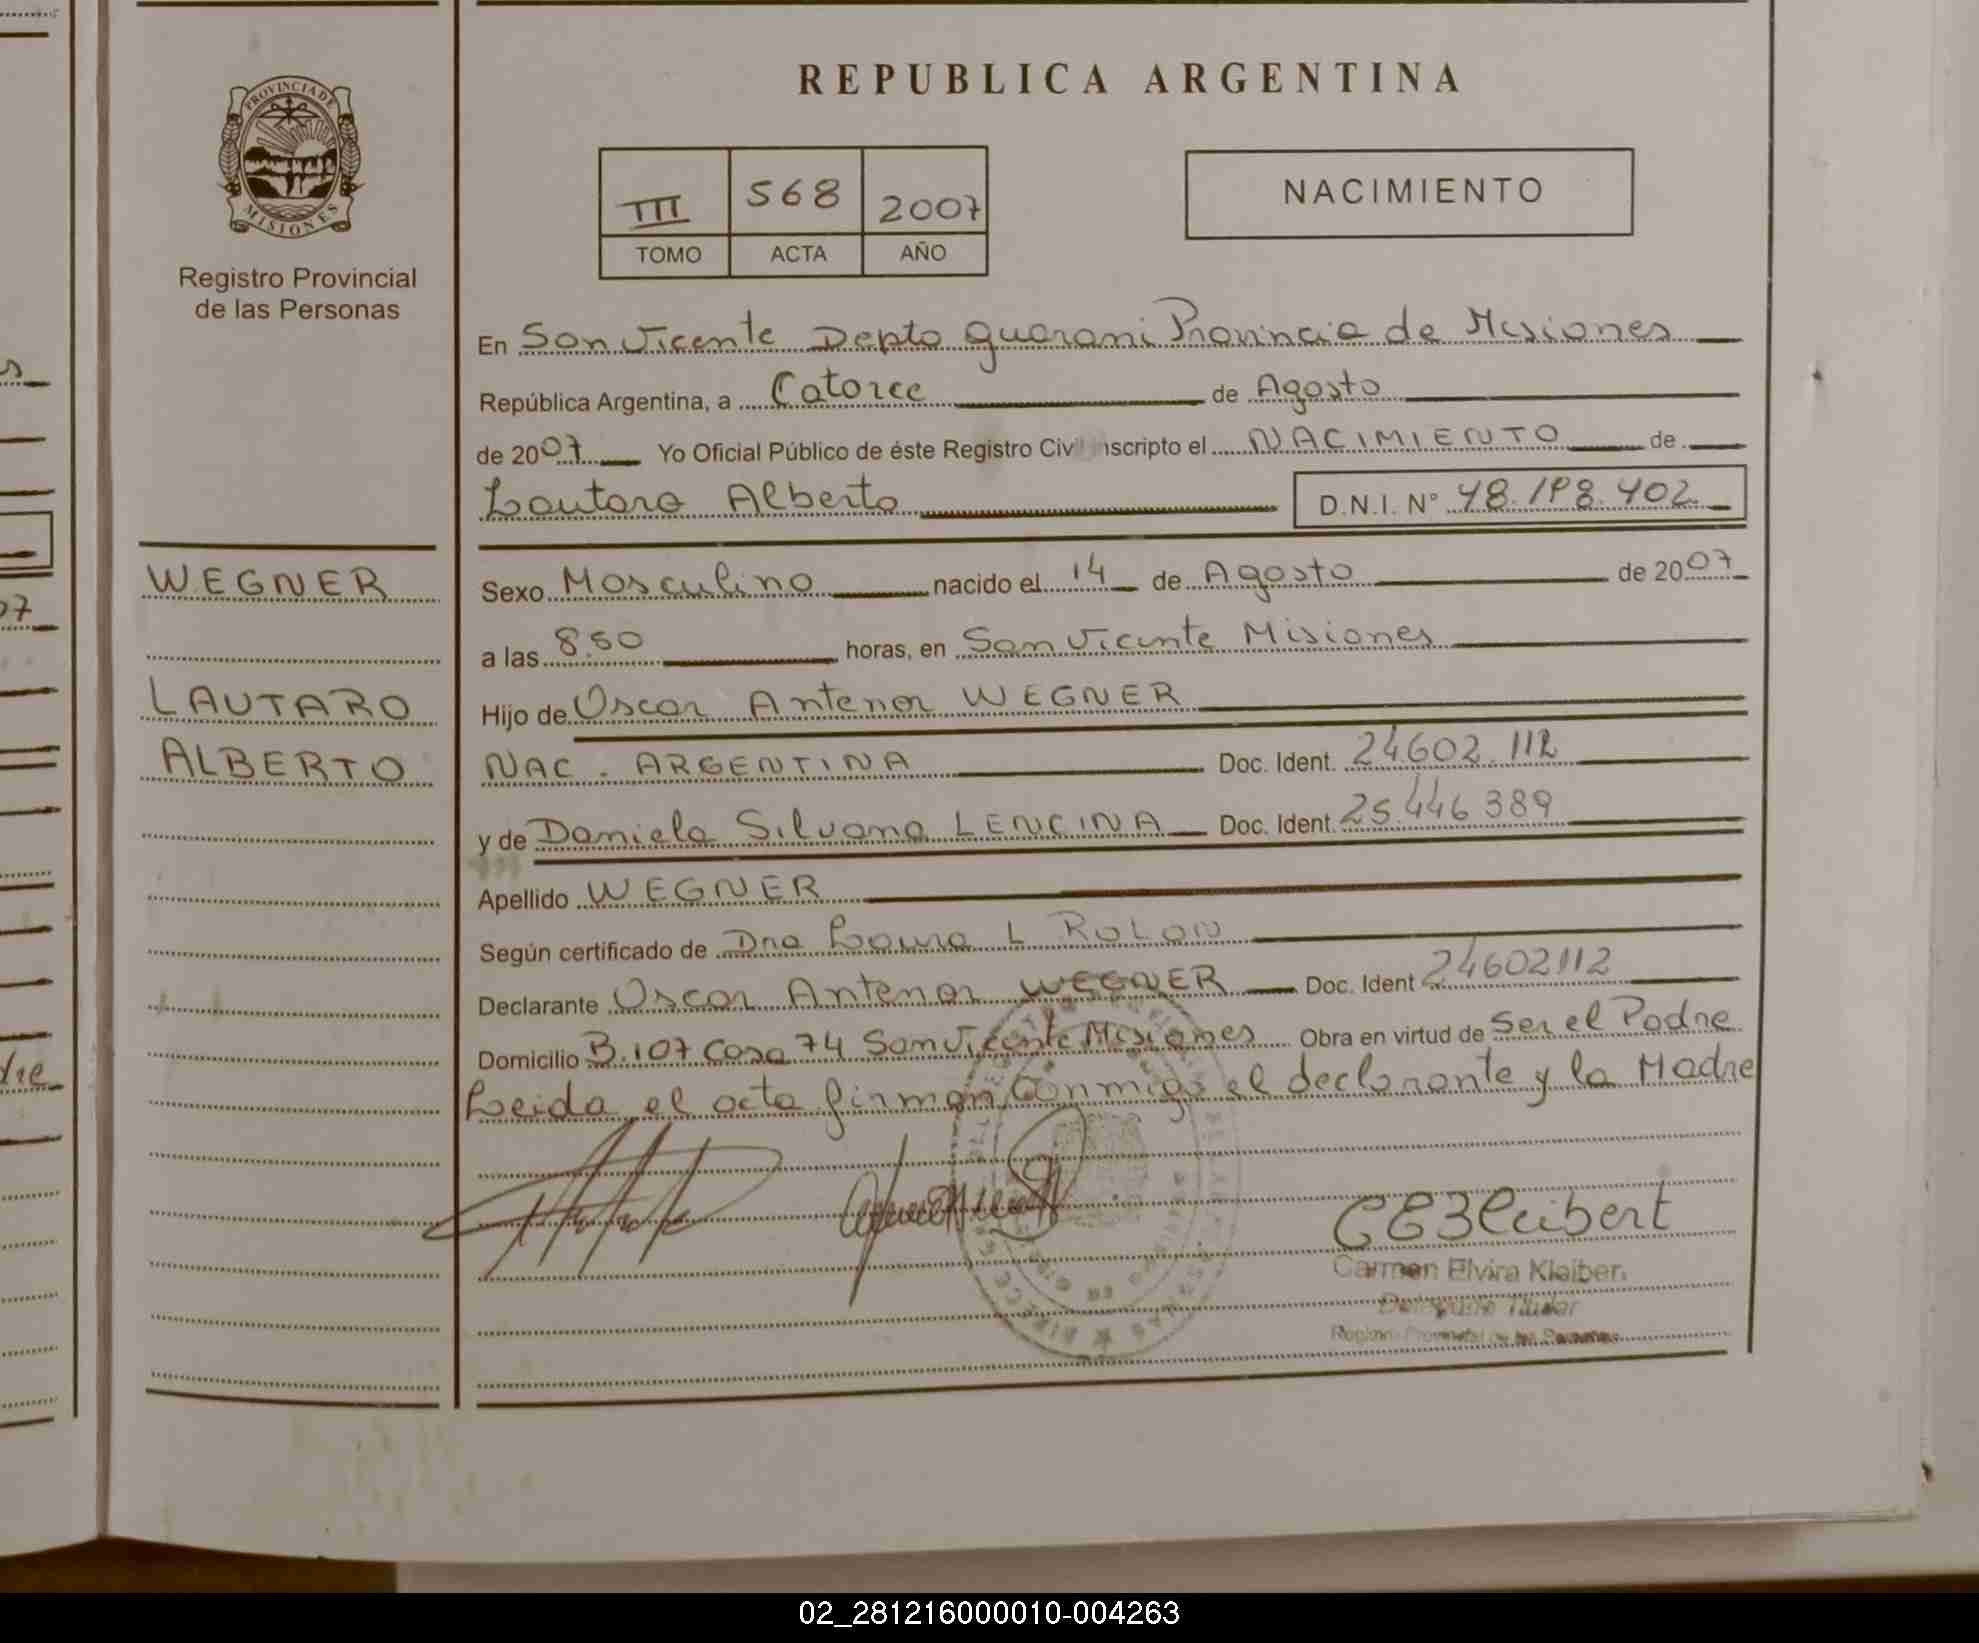 REPUBLICA ARGENTINA
PROVINCIA DE
MISIONES
Registro Provincial
de las Personas
III 568 2007
TOMO ACTA AÑO
NACIMIENTO
En San Vicente Depto Guarani Provincia de Misiones
República Argentina, a Catorce de Agosto
de 2007 Yo Oficial Público de éste Registro Civil inscripto el NACIMIENTO de
Lautaro Alberto D.N.I. N° 48.198.402
WEGNER
LAUTARO
ALBERTO
Sexo Masculino nacido el 14 de Agosto de 2007
a las 8.50 horas, en San Vicente Misiones
Hijo de Oscar Antenor WEGNER
NAC. ARGENTINA Doc. Ident. 24602.112
y de Daniela Silvana LENCINA Doc. Ident. 25.446389
Apellido WEGNER
Según certificado de Dra Laura L ROLON
Declarante Oscar Antenor WEGNER Doc. Ident 24602112
Domicilio B.107 Casa 74 San Vicente Misiones Obra en virtud de Ser el Padre
Leida el acta firman Conmigo el declarante y la Madre
Carmen Elvira Kleiber
Titular
02_281216000010-004263